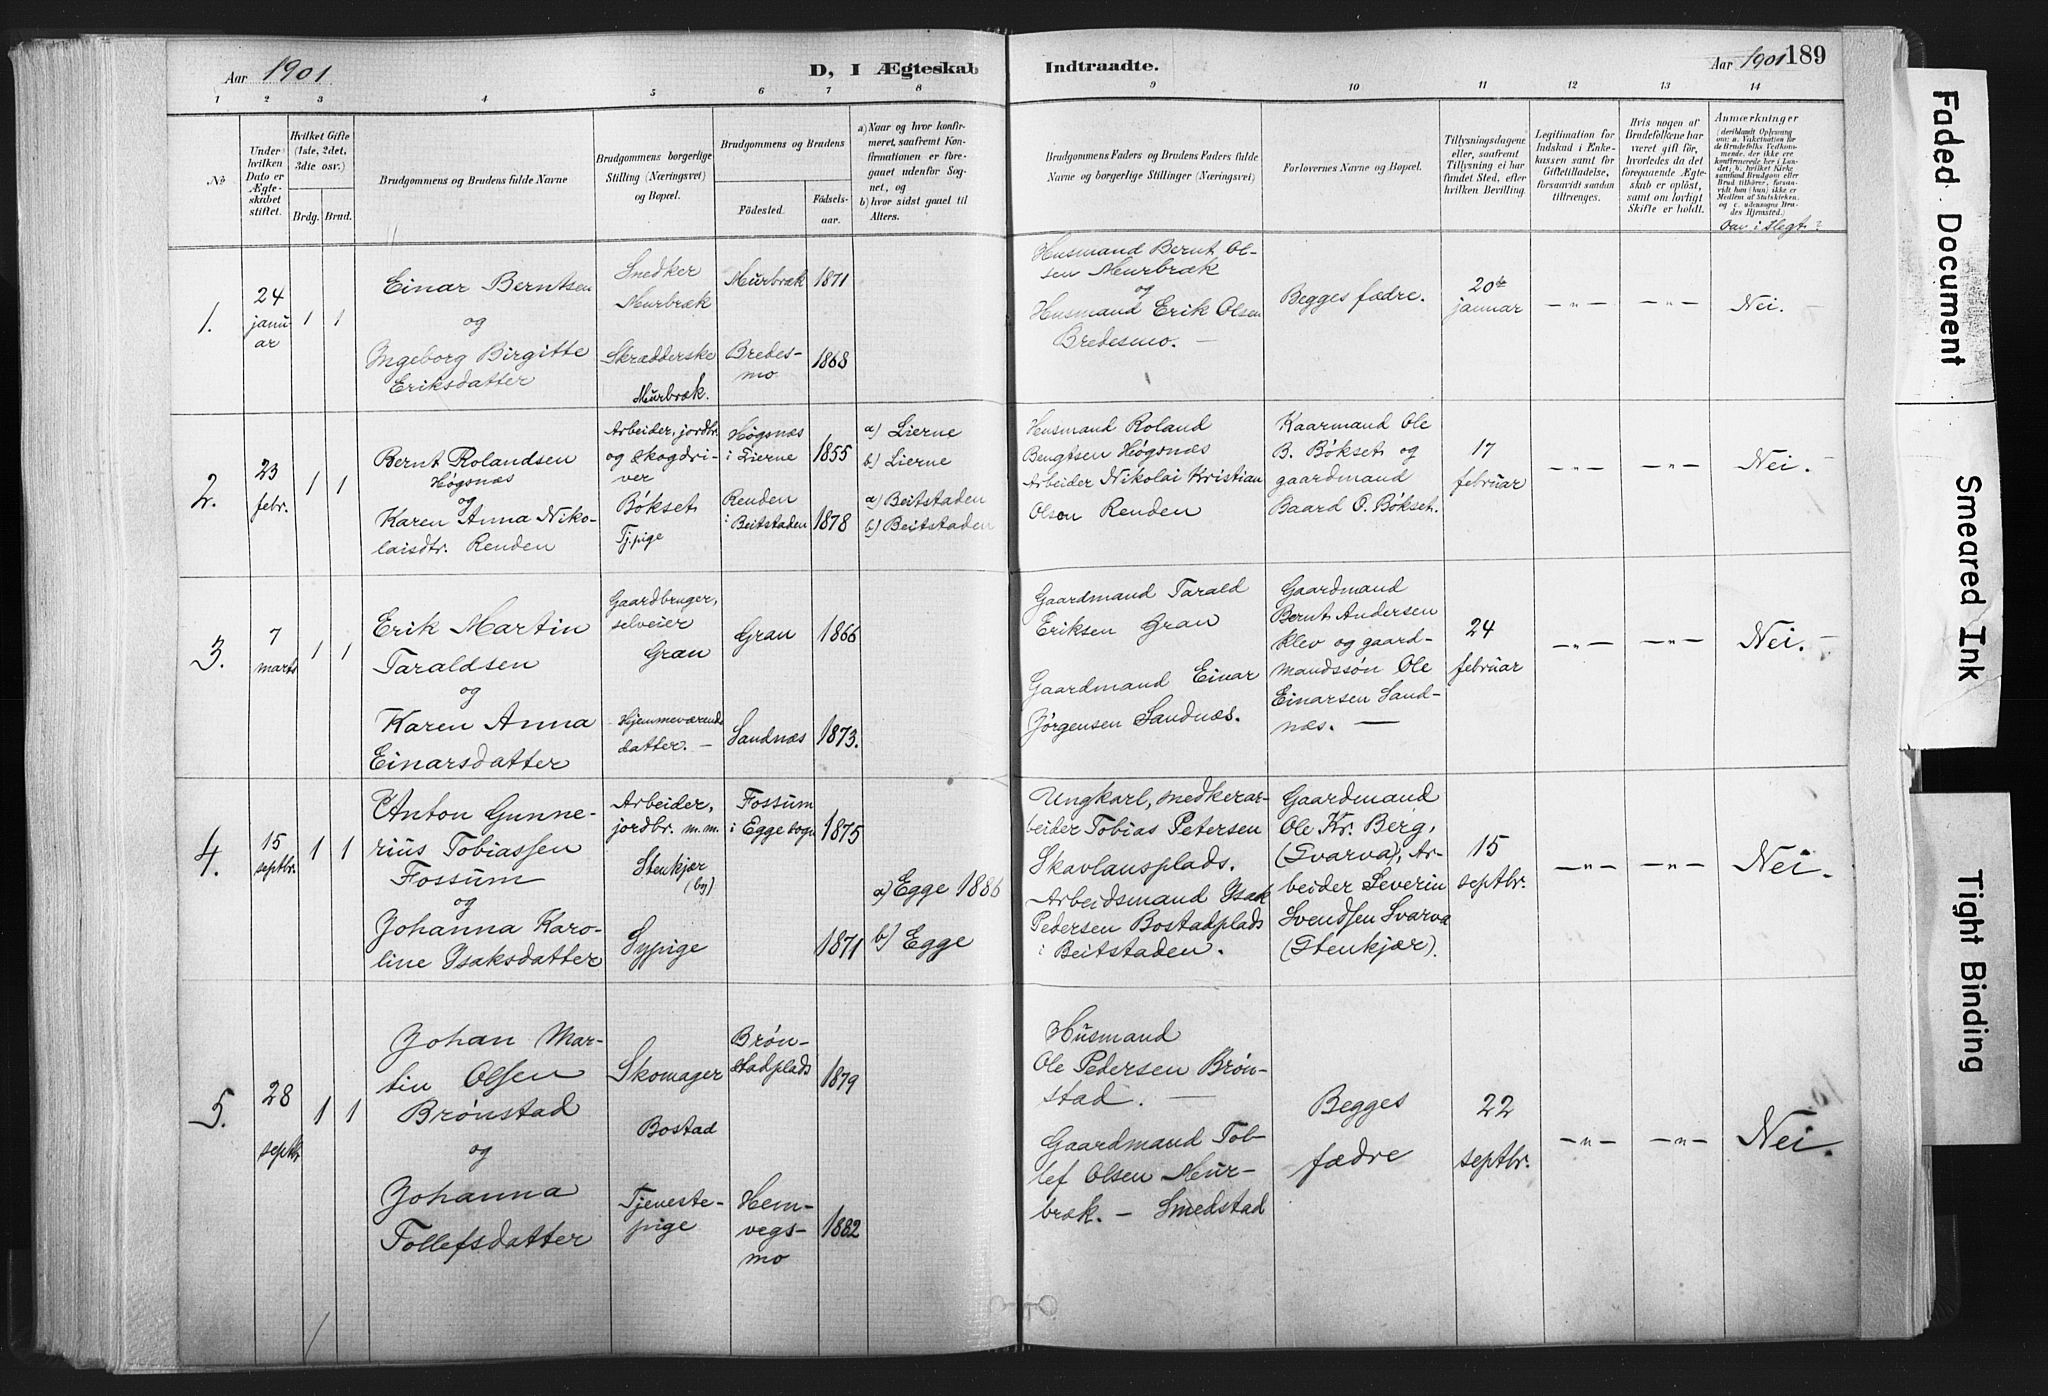 Aar 1901
D, I Ægteskab
Indtraadte.
Aar 1901
189
1 2 3 4 5 6 7 8 9 10 11 12 13 14
No
Under
hvilken
Dato er
Ægte-
skabet
stiftet.
Hvilket Gifte
(1ste, 2det,
3die osv.)
Brdg. Brud.
Brudgommens og Brudens fulde Navne
Brudgommens borgerlige
Stilling (Næringsvei)
og Bopæl.
Brudgommens og Brudens
Fødested.
Fødsels-
aar.
a) Naar og hvor konfir-
meret, saafremt Kon-
firmationen er fore-
gaaet udenfor Sog-
net, og
b) hvor sidst gaaet til
Alters.
Brudgommens Faders og Brudens Faders fulde
Navne og borgerlige Stillinger (Næringsvei)
Forlovernes Navne og Bopæl.
Tillysningsdagene
eller, saafremt
Tillysning ei har
fundet Sted, efter
hvilken Bevilling.
Legitimation for
Indskud i Enke-
kassen samt for
Giftetilladelse,
forsaavidt saadan
tiltrænges.
Hvis nogen af
Brudefolkene har
været gift før,
hvorledes da det
foregaaende Ægte-
skab er opløst,
samt om lovligt
Skifte er holdt.
Anmærkninger
(deriblandt Oplysning
om: a. Vakcination for
de Brudefolks Vedkom-
mende, der ikke ere
konfirmerede her i Lan-
det; b. hvilket Kirke-
samfund Brudgom eller
Brud tilhører, forsaa-
vidt han (hun) ikke er
Medlem af Statskirken.
og c. udensogns Bru-
des Hjemsted.)
Om i Slegt?
1.
24
janu-
ar
1 1
Einar Berntsen
og
Ingeborg Birgitte
Eriksdatter
Snedker
Murbræk
Skrædderske
Murbræk.
Murbræk 1871
Bredes-
mo 1868
Husmand Bernt Ol-
sen Murbræk
og
Husmand Erik Olsen
Bredesmo. —
Begges fædre.
20de
januar
—„—
—„—
Nei.
2.
23
febr.
1 1
Bernt Rolandsen
Høgsnæs
og
Karen Anna Niko-
laisdtr. Renden
Arbeider, jordbr.
og skogdri-
ver
Bøkset
Tj.pige
Høgsnæs
i Lierne 1855
Renden
i Beitstaden 1878
a) Lierne
b) Lierne
a) Beitstaden
b) Beitstaden
Husmand Roland
Bengtsen Høgsnæs
Arbeider Nikolai Kristian
Olsen Renden
Kaarmand Ole
B. Bøkset og
gaardmand
Baard O. Bøkset.
17
februar
—„—
—„—
Nei.
3.
7
marts
1 1
Erik Martin
Taraldsen
og
Karen Anna
Einarsdatter
Gaardbruger,
selveier
Gran
Hjemmeværende
datter. —
Gran 1866
Sandnæs 1873.
Gaardmand Tarald
Eriksen Gran
Gaardmand Einar
Jørgensen Sandnæs.
Gaardmand
Bernt Andersen
Klev og gaard-
mandssøn Ole
Einarsen Sand-
næs. —
24
februar
—„—
—„—
Nei.
4.
15
septbr.
1 1
Anton Gunne-
rius Tobiassen
Fossum
og
Johanna Karo-
line Isaksdatter
Arbeider,
jordbr. m.m.
Stenkjær
(by)
Sypige
Fossum
i Egge sogn 1875
1871
a) Egge 1886
b) Egge
Ungkarl, snedkerar-
beider Tobias Petersen
Skavlansplads.
Arbeidsmand Isak
Pedersen Bostadplads
i Beitstaden.
Gaardmand
Ole Kr. Berg,
(Svarva), Ar-
beider Severin
Svendsen Svarva
(Stenkjær).
15
septbr.
—„—
—„—
Nei.
5.
28
septbr.
1 1
Johan Mar-
tin Olsen
Brønstad
og
Johanna
Tollefsdatter
Skomager
Bostad
Tjeneste-
pige
Brøn-
stadplads 1879
Hem-
vegs-
mo 1882
Husmand
Ole Pedersen Brøn-
stad. —
Gaardmand Tol-
lef Olsen Mur-
bræk. — Smedstad
Begges
fædre
22
septbr.
—„—
—„—
Nei.
Faded Document
Smeared Ink
Tight Binding